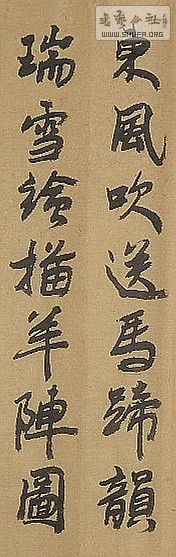 東風吹送馬蹄韻
瑞雪繪描羊陣圖
書藝公社
WWW.SHUFA.ORG